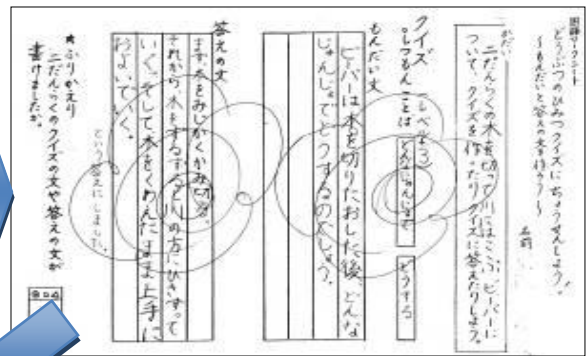 国語ワークシート
どうぶつのひみつクイズにちょうせんしよう！
〜もんだいと答えの文を作ろう〜
名前
かだい
二だんらくの木を切って川にはこぶビーバーに
ついて、クイズを作ったりクイズに答えたりしよう。
クイズ（レベル3）
○しつもんことば どんなじゅんじょで どうする
もんだい文
ビーバーは木を切りたおした後、どんな
じゅんじょでどうするのでしょう。
答えの文
まず、木をみじかくかみ切り、
それから、木をずるずると川の方にひきずって
いく。そして木をくわえたまま上手に
およいでいく。
という答えにしました。
★ふりかえり
二だんらくのクイズの文や答えの文が
書けましたか。
◎○△